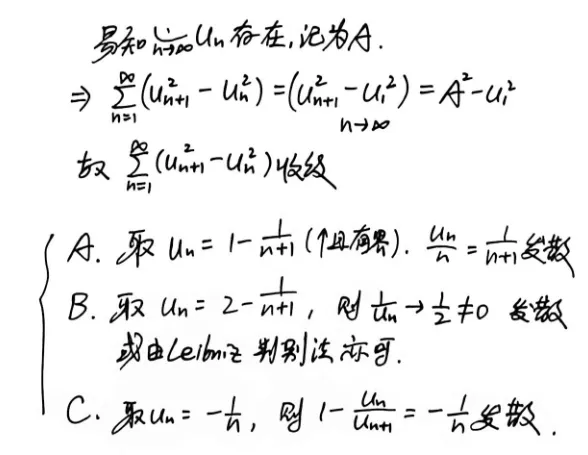 易知 lim_{n→∞} Un 存在,记为A.
⇒ ∑_{n=1}^{∞}(U_{n+1}^2 - U_n^2) = (U_{n+1}^2 - U_1^2) = A^2 - U_1^2
n→∞
故 ∑_{n=1}^{∞}(U_{n+1}^2 - U_n^2) 收敛
A. 取 Un = 1 - 1/(n+1) (↑且有界). Un/n = 1/(n+1) 发散
B. 取 Un = 2 - 1/(n+1), 则 1/Un → 1/2 ≠ 0 发散
或由Leibniz 判别法亦可.
C. 取 Un = -1/n, 则 1 - Un/U_{n+1} = -1/n 发散.